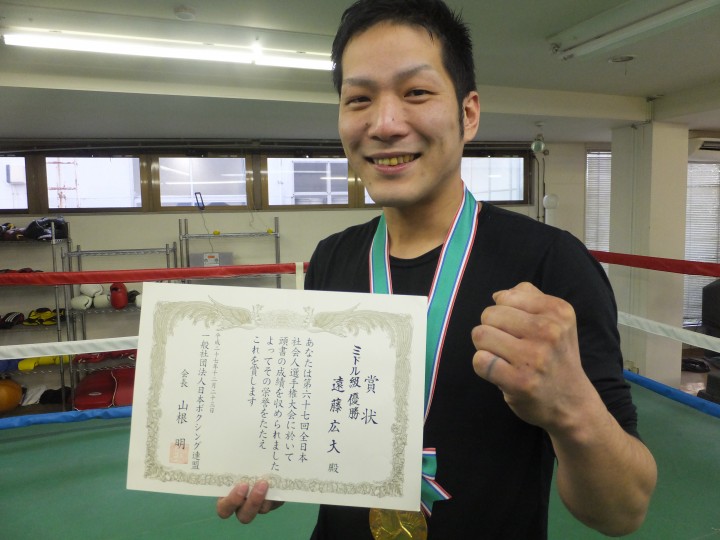 賞状
ミドル級 優勝
遠藤 広大 殿
あなたは第六十七回全日本
社会人選手権大会に於いて
頭書の成績を収められました
よってその栄誉をたたえ
これを賞します
平成二十七年十二月二十三日
一般社団法人日本ボクシング連盟
会長 山根 明